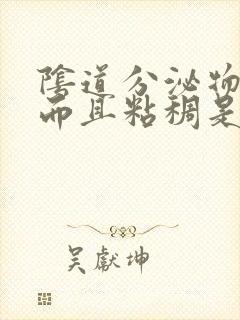 陰道分泌物
而且粘稠是
吴獻坤